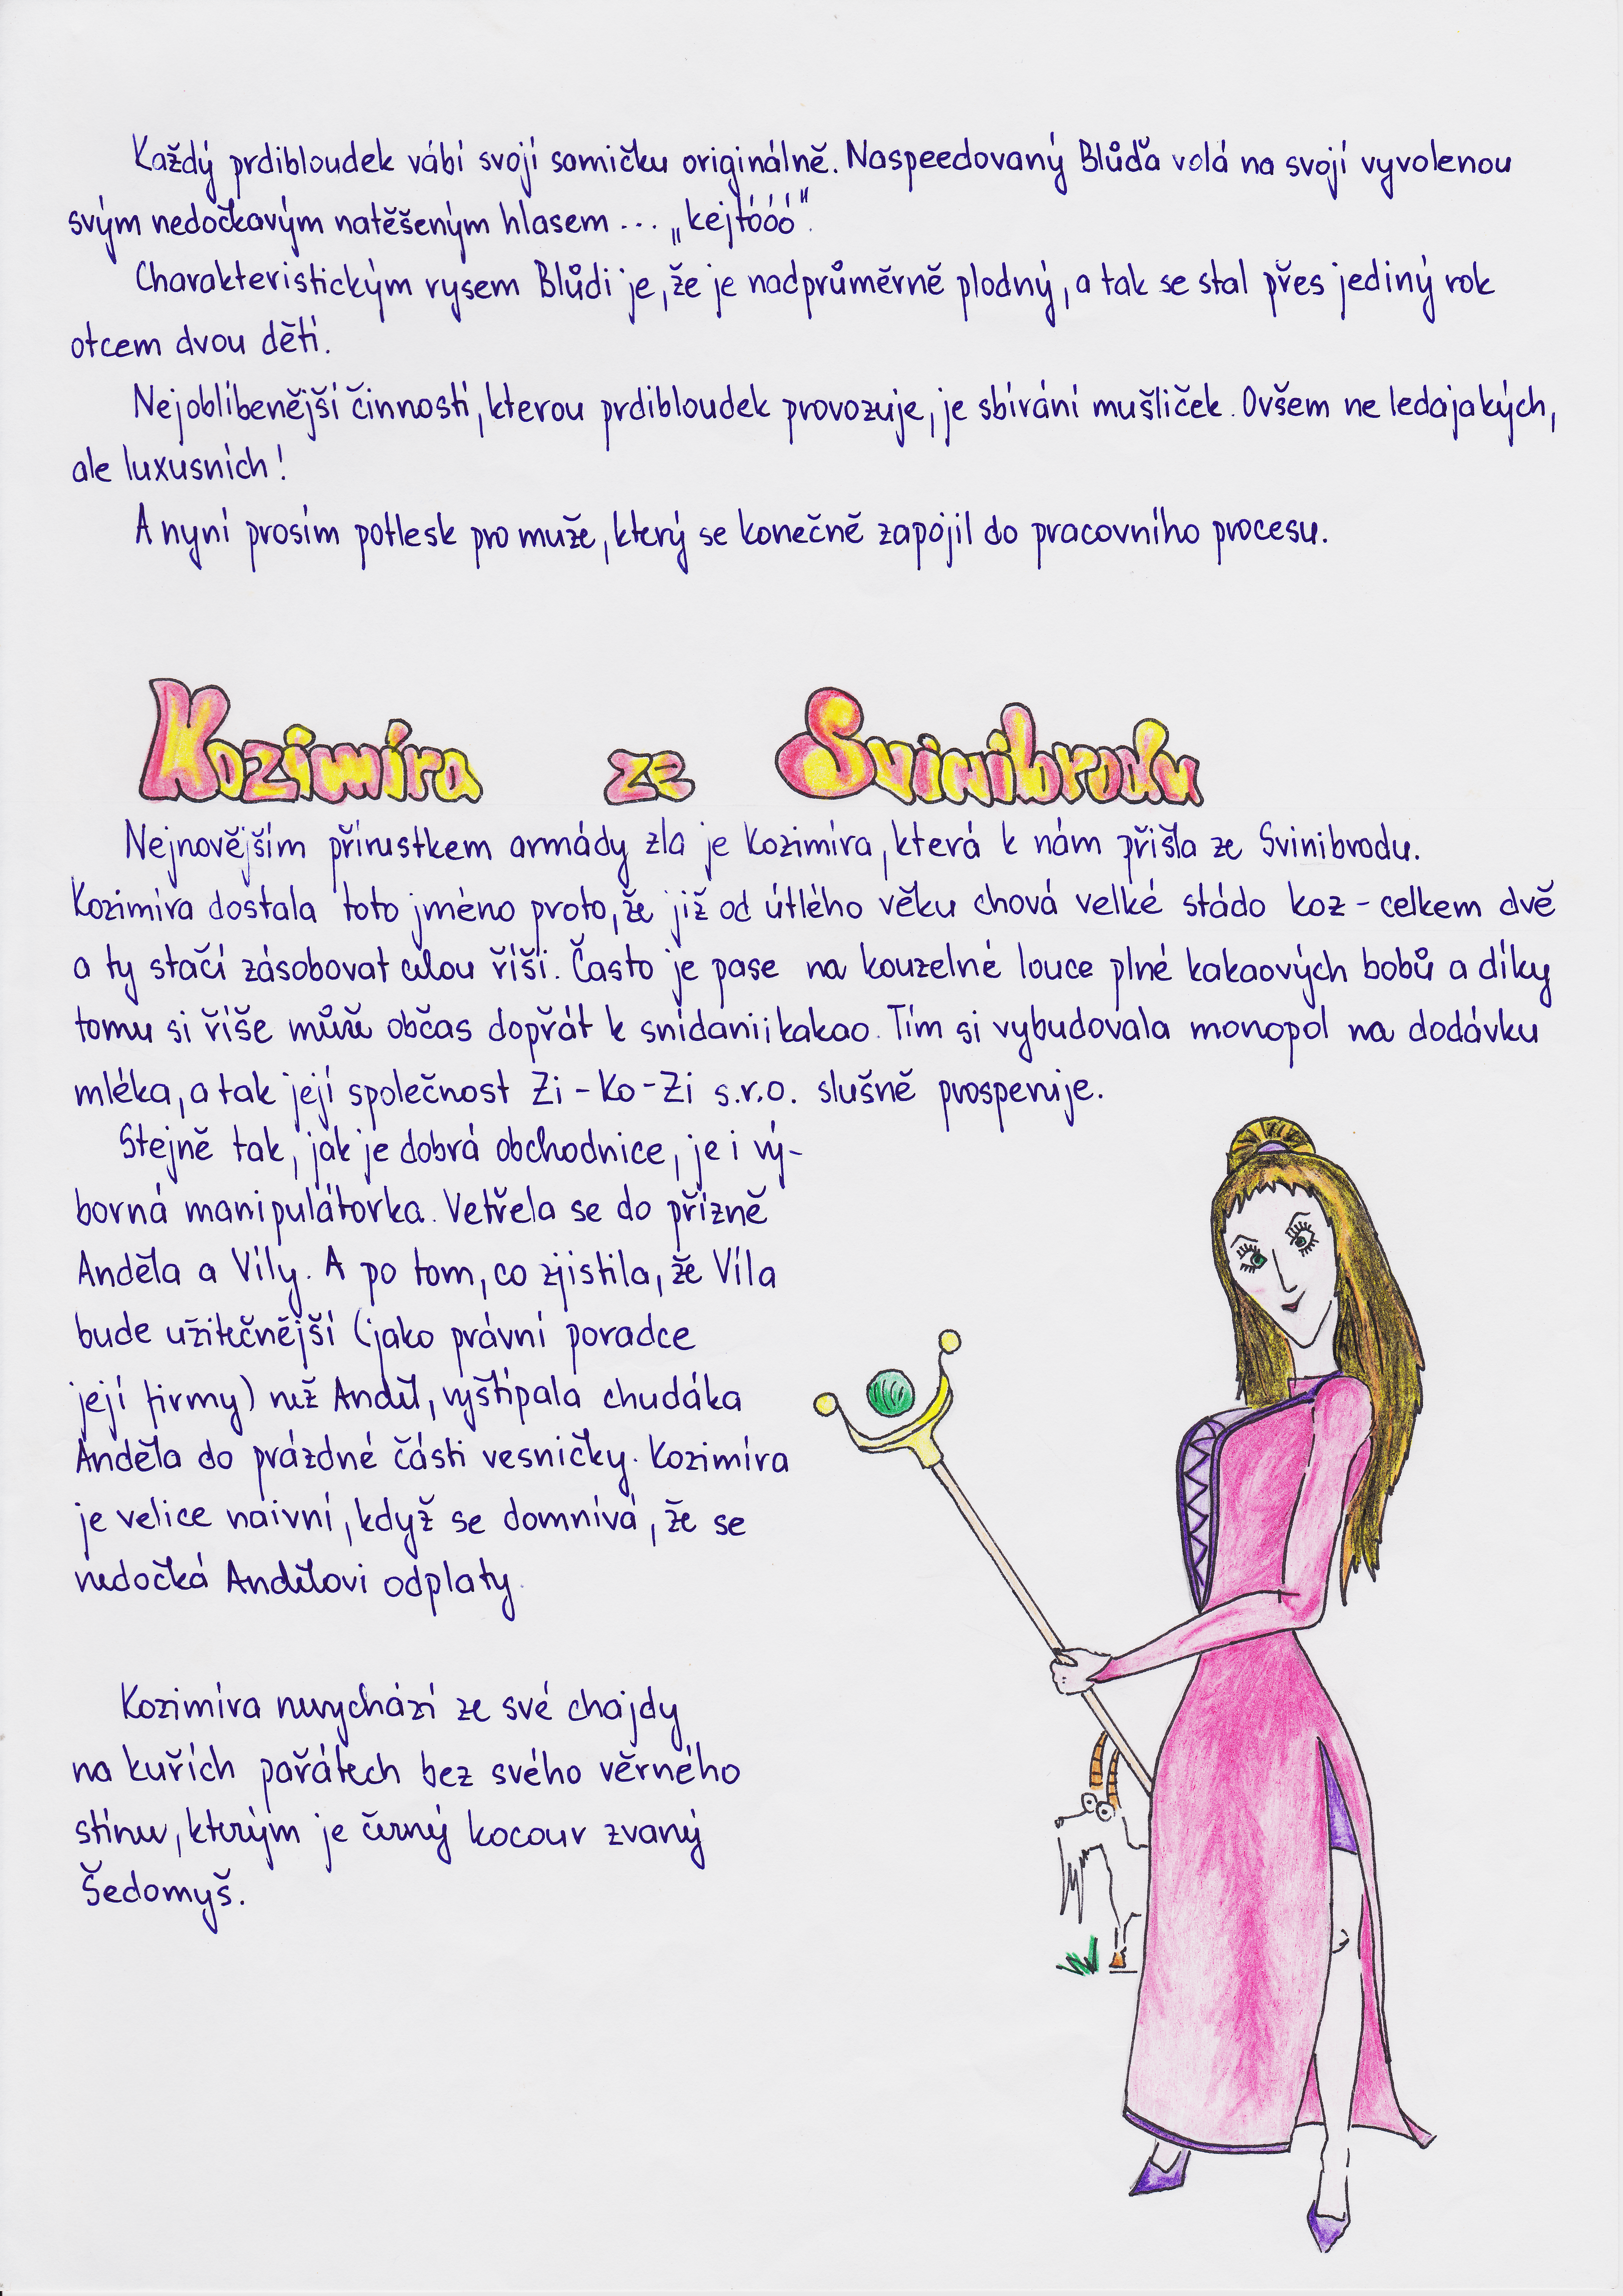 Každý prdibloudek vábí svojí samičku originálně. Naspeedovaný Blůďa volá na svojí vyvolenou
svým nedočkavým natěšeným hlasem ... „kejtóóó“.
Charakteristickým rysem Blůdi je, že je nadprůměrně plodný, a tak se stal přes jediný rok
otcem dvou dětí.
Nejoblíbenější činností, kterou prdibloudek provozuje, je sbírání mušliček. Ovšem ne ledajakých,
ale luxusních!
A nyní prosím potlesk pro muže, který se konečně zapojil do pracovního procesu.
Kozimíra ze Svinibrodu
Nejnovějším přírustkem armády zla je Kozimíra, která k nám přišla ze Svinibrodu.
Kozimíra dostala toto jméno proto, že již od útlého věku chová velké stádo koz - celkem dvě
a ty stačí zásobovat celou říši. Často je pase na kouzelné louce plné kakaových bobů a díky
tomu si říše může občas dopřát k snídani i kakao. Tím si vybudovala monopol na dodávku
mléka, a tak její společnost Zi-Ko-Zi s.r.o. slušně prosperuje.
Stejně tak, jak je dobrá obchodnice, je i vý-
borná manipulátorka. Vetřela se do přízně
Anděla a Víly. A po tom, co zjistila, že Víla
bude užitečnější (jako právní poradce
její firmy) než Anděl, vyštípala chudáka
Anděla do prázdné části vesničky. Kozimíra
je velice naivní, když se domnívá, že se
nedočká Andělovi odplaty.
Kozimíra nevychází ze své chajdy
na kuřích pařátech bez svého věrného
stínu, kterým je černý kocour zvaný
Šedomyš.